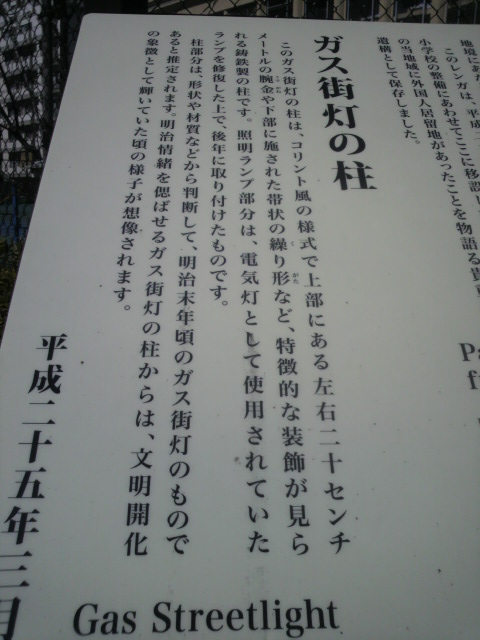 地境にあ
このレンガは、平成
小学校の整備にあわせてここに移設し
の当地域に外国人居留地があったことを物語る貴重
遺構として保存しました。
ガス街灯の柱
このガス街灯の柱は、コリント風の様式で上部にある左右二十センチ
メートルの腕金や下部に施された帯状の繰り形など、特徴的な装飾が見ら
れる鋳鉄製の柱です。照明ランプ部分は、電気灯として使用されていた
ランプを修復した上で、後年に取り付けたものです。
柱部分は、形状や材質などから判断して、明治末年頃のガス街灯のもので
あると推定されます。明治情緒を偲ばせるガス街灯の柱からは、文明開化
の象徴として輝いていた頃の様子が想像されます。
平成二十五年三月
Gas Streetlight